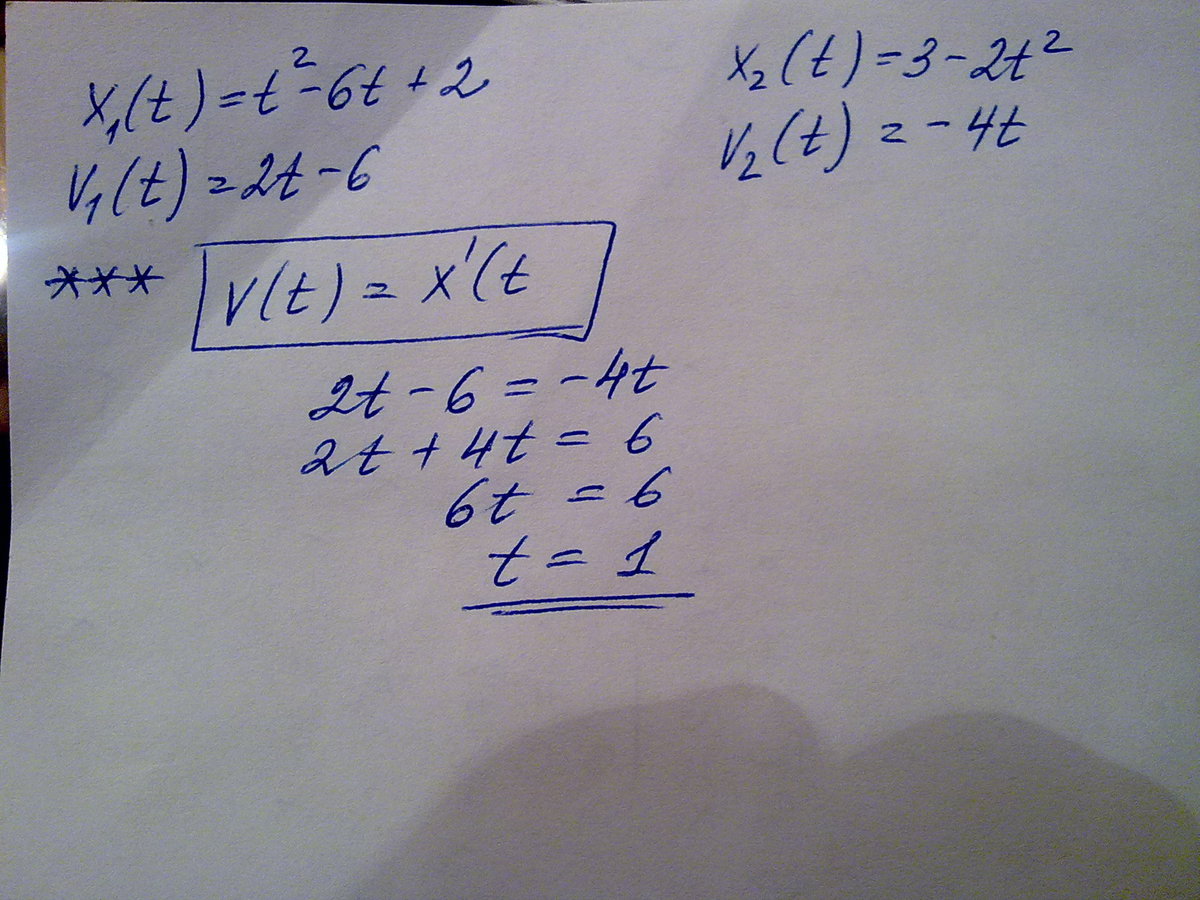 X₁(t)=t²-6t+2
V₁(t)=2t-6
x₂(t)=3-2t²
V₂(t)=-4t
*** V(t)=x'(t
2t-6=-4t
2t+4t=6
6t=6
t=1